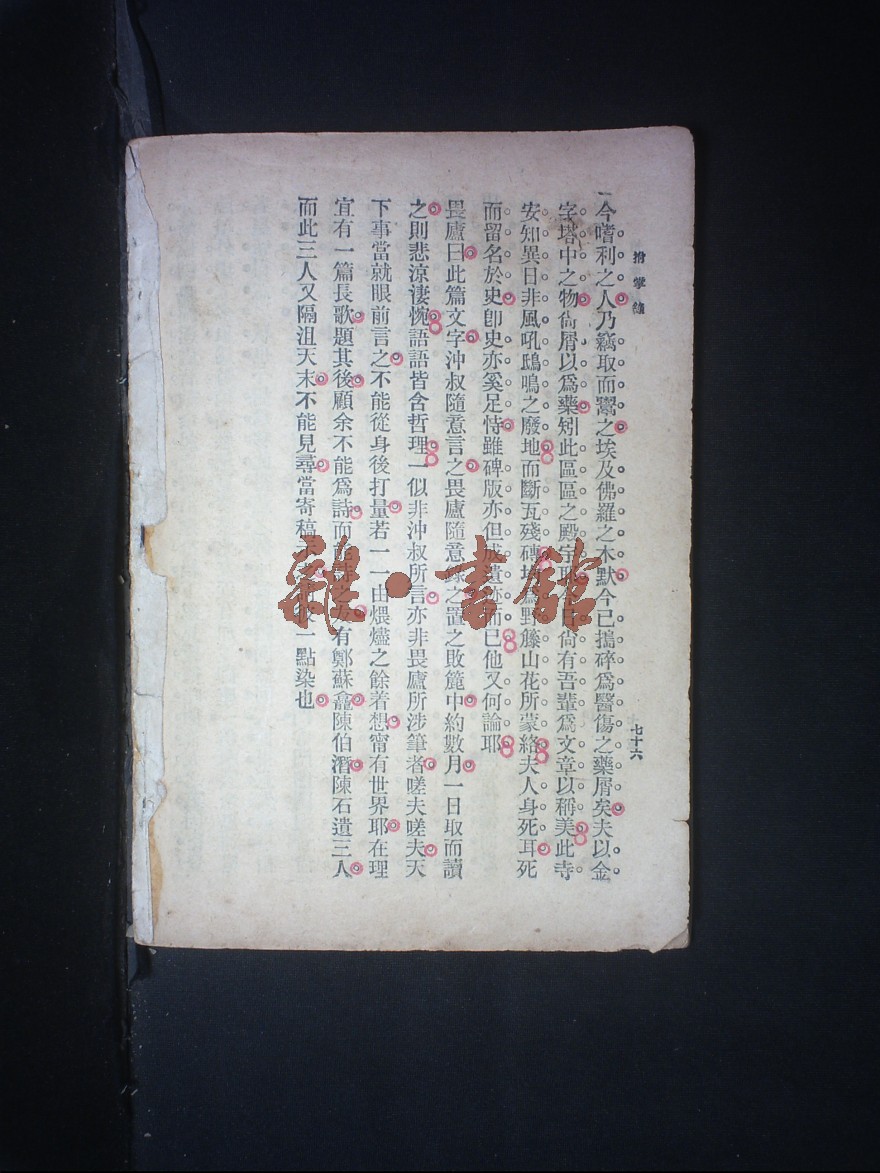 拊掌錄
七十六
今嗜利之人乃竊取而鬻之埃及佛羅之木默今已搗碎爲醫傷之藥屑矣夫以金
字塔中之物尙屑以爲藥矧此區區之殿宇耶 尙有吾輩爲文章以稱美此寺
安知異日非風吼鴟鳴之廢地而斷瓦殘磚 爲野籐山花所蒙絡夫人身死耳死
而留名於史卽史亦奚足恃雖碑版亦但成遺跡而已他又何論耶
畏廬曰此篇文字沖叔隨意言之畏廬隨意錄之置之敗簏中約數月一日取而讀
之則悲涼淒惋語語皆含哲理一似非沖叔所言亦非畏廬所涉筆者嗟夫嗟夫天
下事當就眼前言之不能從身後打量若一一由煨燼之餘着想甯有世界耶在理
宜有一篇長歌題其後顧余不能爲詩而 詩之友有鄭蘇龕陳伯潛陳石遺三人
而此三人又隔沮天末不能見尋當寄稿 一點染也
雜·書館